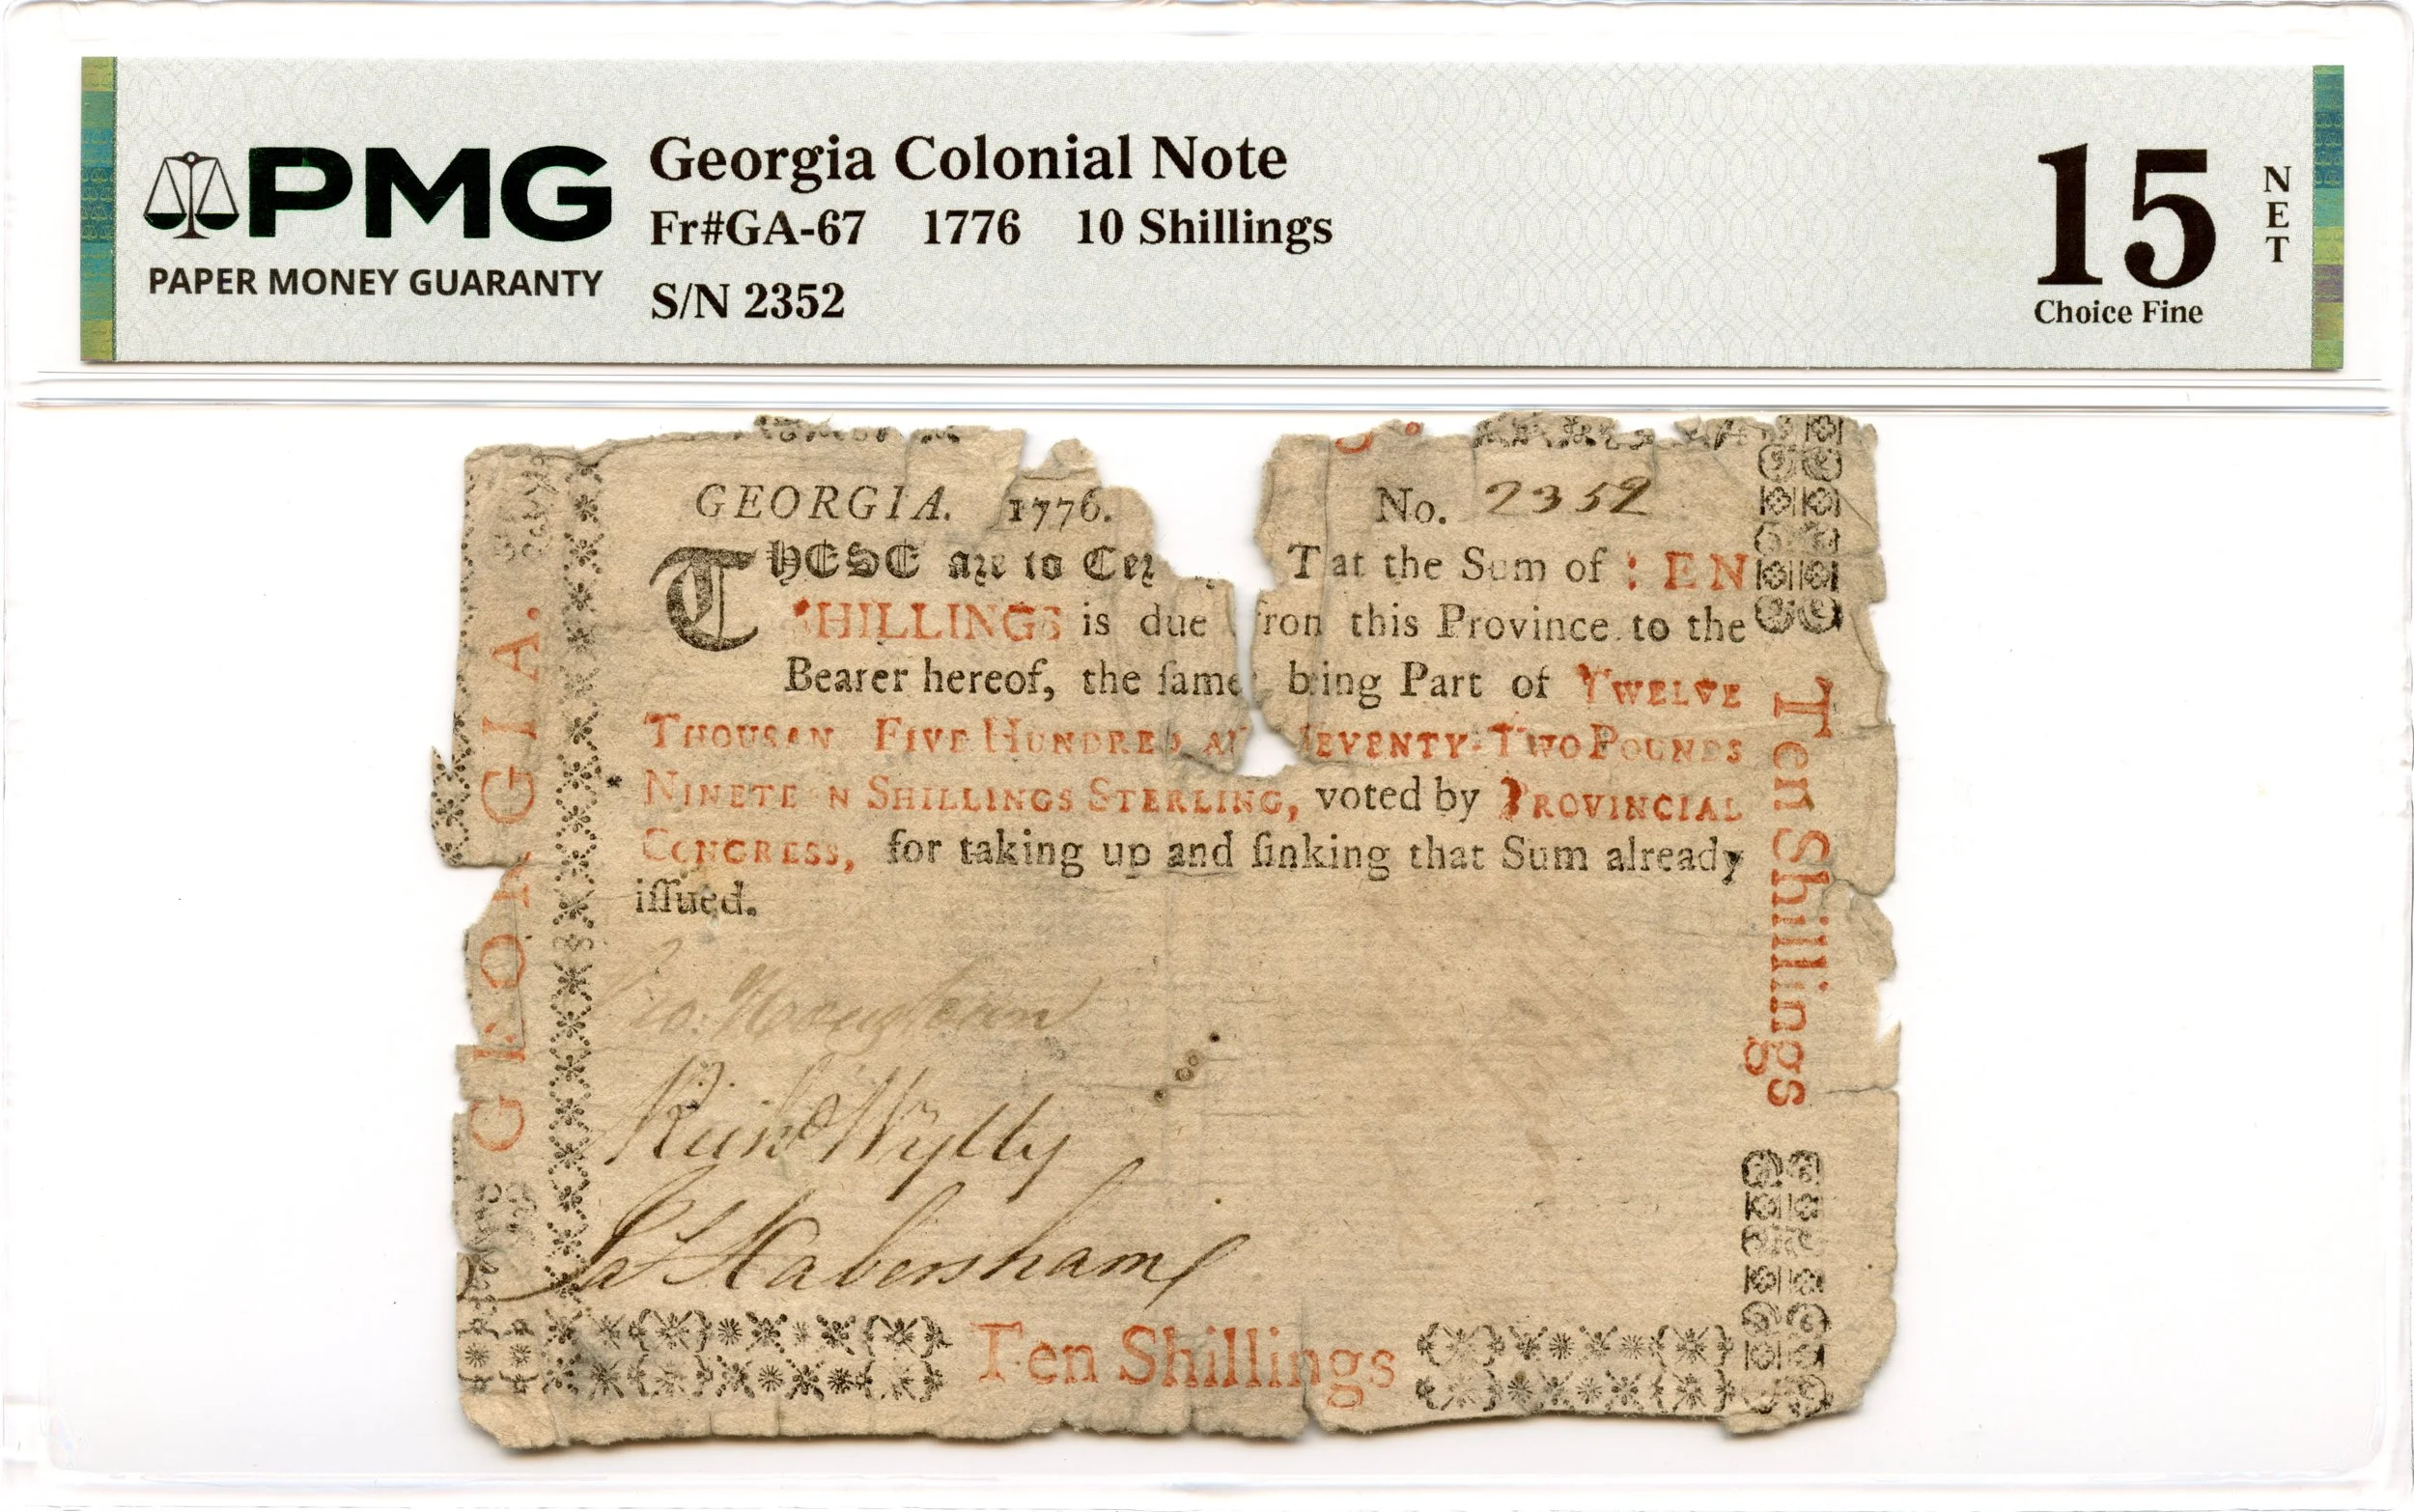 PMG
PAPER MONEY GUARANTY
Georgia Colonial Note
Fr#GA-67 1776 10 Shillings
S/N 2352
15
NET
Choice Fine
GEORGIA. 1776.
No. 2352
THESE are to Cer T at the Sum of EN
SHILLINGS is due from this Province to the
Bearer hereof, the ſame being Part of TWELVE
THOUSAN FIVE HUNDRED AN SEVENTY-TWO POUNDS
NINETEEN SHILLINGS STERLING, voted by PROVINCIAL
CONGRESS, for taking up and ſinking that Sum already
iſſued.
Houstoun
Richd Wylly
Jas Habersham
Ten Shillings
GEORGIA.
Ten Shillings